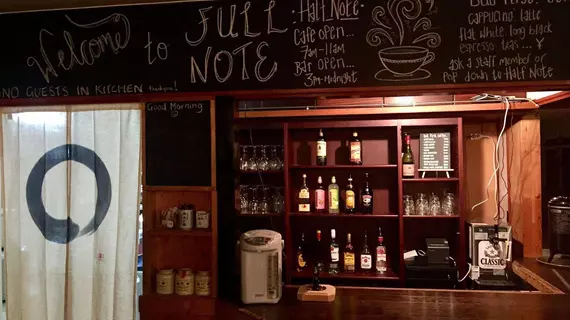 Welcome to FULL NOTE
NO GUESTS IN KITCHEN thankyou!
Half Note
Cafe open...
7am-11am
Bar open...
3pm-midnight
cappucino latte
flat white long black
espresso teas... ¥
ask a staff member or
pop down to Half Note
Good Morning
CLASSIC